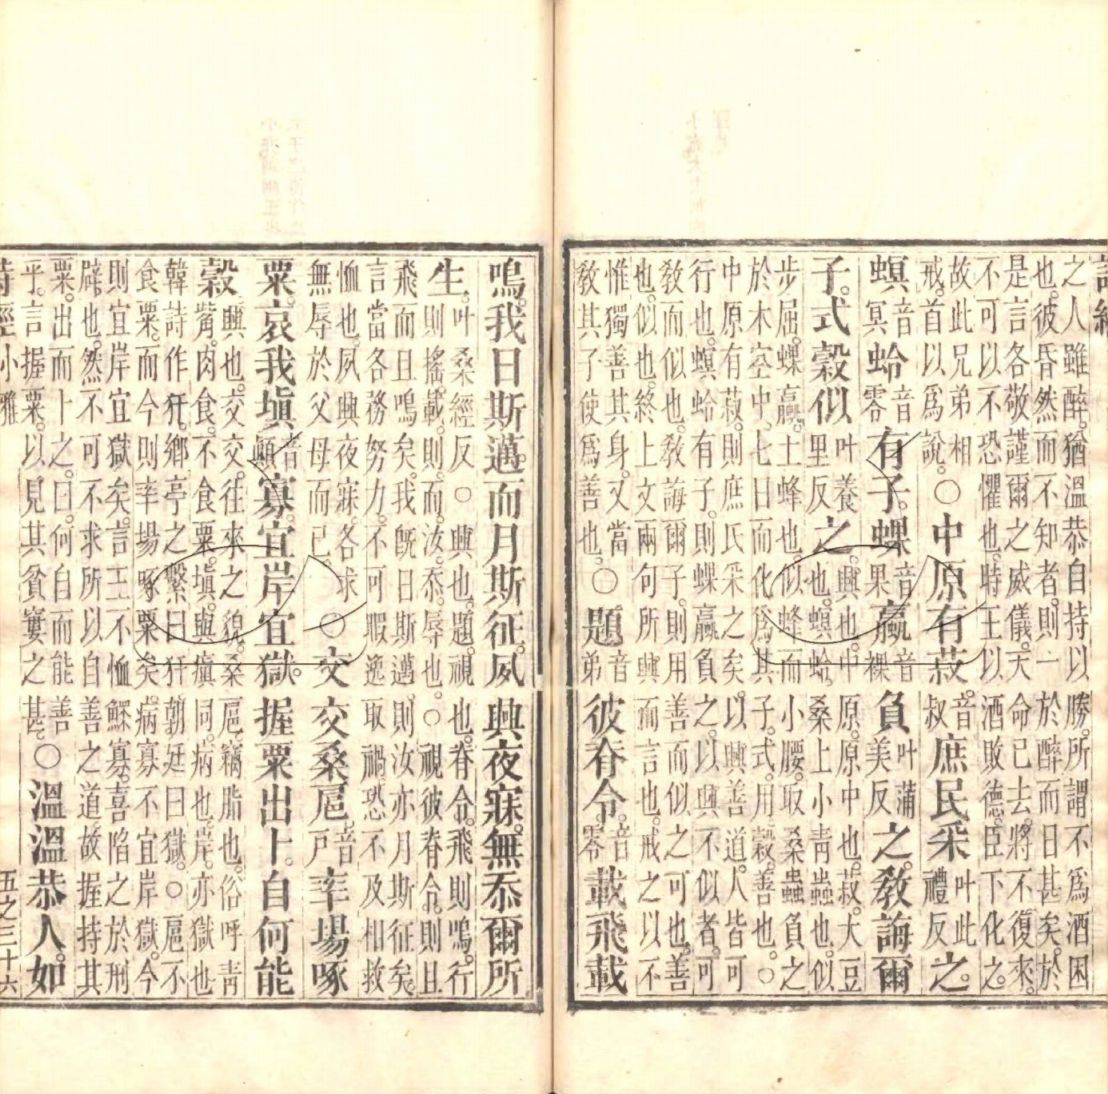 詩經
之人雖醉。猶溫恭自持以勝。所謂不爲酒困
也。彼昏然而不知者。則一於醉而日甚矣。於
是言各敬謹爾之威儀。天命已去。將不復來。
不可以不恐懼也。時王以酒敗德。臣下化之。
故此兄弟相戒。首以爲說。○中原有菽。音叔庶民采叶此禮反之。
螟音冥蛉音零有子。蜾音果蠃音祼負叶蒲美反之。敎誨爾
子。式穀似叶養里反之。興也。中原。原中也。菽。大豆
也。螟蛉。桑上小靑蟲也。似
步屈。蜾蠃。土蜂也。似蜂而小腰。取桑蟲負之
於木空中。七日而化爲其子。式。用。穀。善也。○
中原有菽。則庶民采之矣。以興善道。人皆可
行也。螟蛉有子。則蜾蠃負之。以興不似者。可
敎而似也。敎誨爾子。則用善而似之可也。善
也。似也。終上文兩句所興而言也。戒之以不
惟獨善其身。又當敎其子使爲善也。○題音弟彼脊令。音零載飛載
鳴。我日斯邁。而月斯征。夙興夜寐。無忝爾所
生。叶桑經反○興也。題。視也。脊令。飛則鳴。行
則搖。載。則。而。汝。忝。辱也。○視彼脊令。則且
飛而且鳴矣。我旣日斯邁。則汝亦月斯征矣
言當各務努力。不可暇逸取禍。恐不及相救
恤也。夙興夜寐。各求無辱於父母而已○交交桑扈。音戶率場啄
粟。哀我塡顚寡。宜岸宜獄。握粟出卜。自何能
穀。興也。交交。往來之貌。桑扈。竊脂也。俗呼靑
觜。肉食。不食粟。塡。與瘨同。病也。岸。亦獄也
韓詩作犴。鄕亭之繫曰犴。朝廷曰獄。○扈不
食粟。而今則率場啄粟矣。病寡不宜岸獄。今
則宜岸宜獄矣。言王不恤鰥寡。喜陷之於刑
辟也。然不可不求所以自善之道。故握持其
粟。出而卜之。曰。何自而能善
乎。言握粟。以見其貧窶之甚。○溫溫恭人。如
詩經小雅 五之三十六